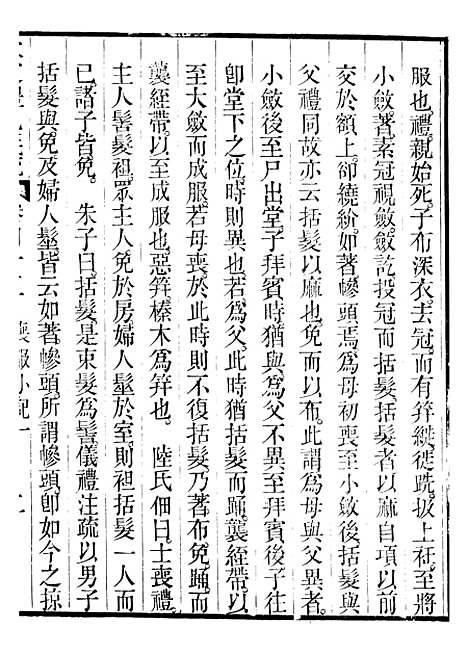 服也。禮。親始死。子布深衣。去冠。而有笄縰。徒跣。扱上衽。至將
小斂。著素冠視斂。斂訖。投冠而括髮。括髮者。以麻自項以前
交於額上。卻繞紒。如著幓頭焉。爲母初喪。至小斂後括髮。與
父禮同。故亦云括髮以麻也。免而以布。此謂爲母與父異者。
小斂後至尸出堂。子拜賓時。猶與爲父不異。至拜賓後。子往
卽堂下之位時則異也。若爲父。此時猶括髮而踊。襲絰帶。以
至大斂而成服。若母喪。於此時則不復括髮。乃著布免踊。而
襲絰帶。以至成服也。惡笄。榛木爲笄也。 陸氏佃曰。士喪禮。
主人髻髮袒。眾主人免於房。婦人髽於室。則袒括髮一人而
已。諸子皆免。 朱子曰。括髮是束髮爲髻。儀禮注疏以男子
括髮與免。及婦人髽。皆云如著幓頭。所謂幓頭。卽如今之掠
喪服小記一